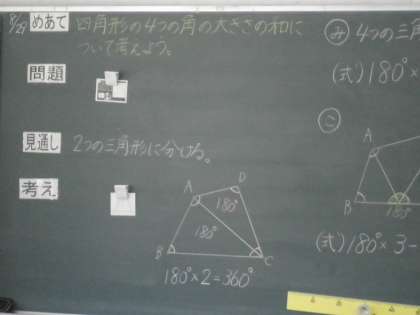 8/29
めあて
四角形の4つの角の大きさの和に
ついて考えよう。
問題
見通し
2つの三角形に分ける。
考え
A
D
180°
180°
B
C
180°×2=360°
み 4つの三角
(式)180°×
こ
A
B
180°
(式)180°×3-